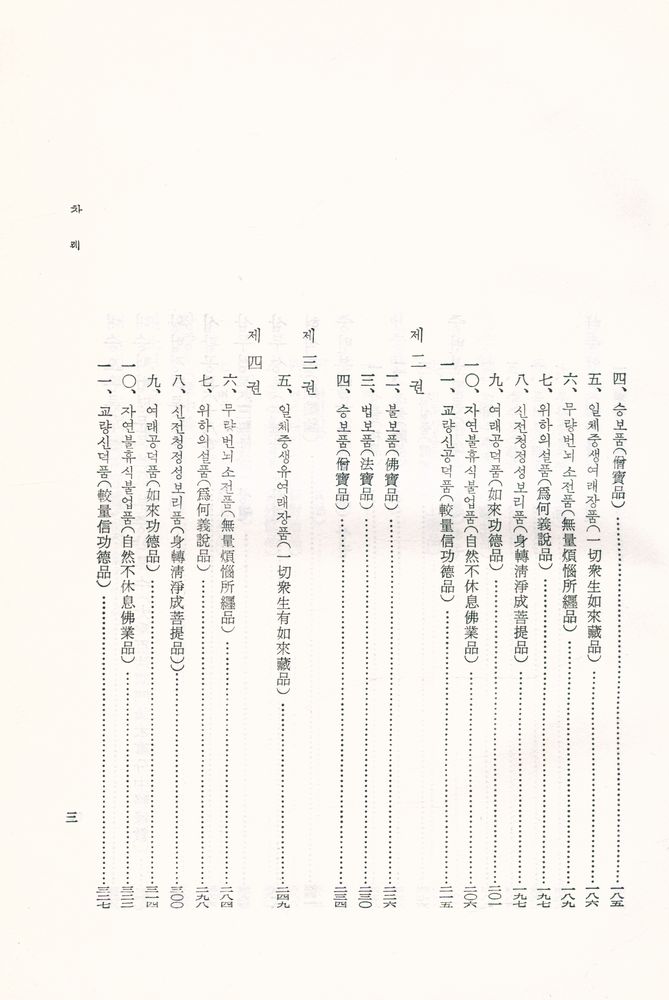 四、승보품(僧寶品)……一八五
五、일체중생여래장품(一切衆生如來藏品)……一八六
六、무량번뇌소전품(無量煩惱所纒品)……一八九
七、위하의설품(爲何義說品)……一九七
八、신전청정성보리품(身轉淸淨成菩提品)……一九七
九、여래공덕품(如來功德品)……二〇一
一〇、자연불휴식불업품(自然不休息佛業品)……二〇六
一一、교량신공덕품(較量信功德品)……二一五
제 二 권
二、불보품(佛寶品)……二二六
三、법보품(法寶品)……二三〇
四、승보품(僧寶品)……二三四
제 三 권
五、일체중생유여래장품(一切衆生有如來藏品)……二四九
제 四 권
六、무량번뇌소전품(無量煩惱所纒品)……二八四
七、위하의설품(爲何義說品)……二九八
八、신전청정성보리품(身轉淸淨成菩提品))……三〇〇
九、여래공덕품(如來功德品)……三一四
一〇、자연불휴식불업품(自然不休息佛業品)……三二二
一一、교량신덕품(較量信功德品)……三二七
차 례
三